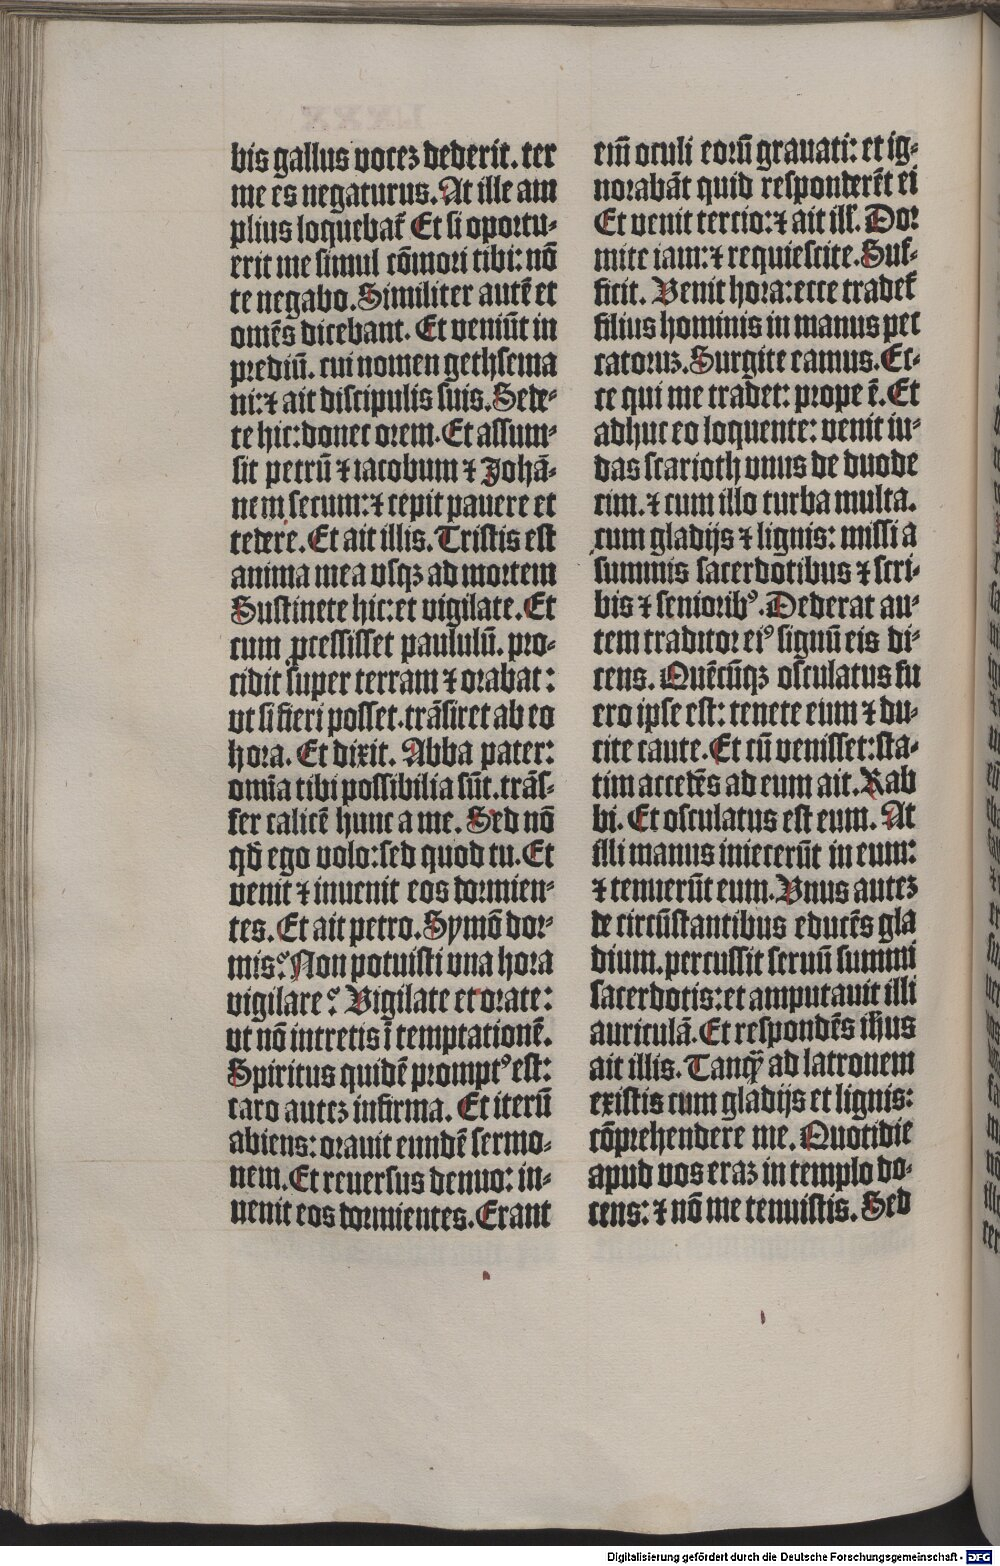 bis gallus vocez dederit. ter
me es negaturus. At ille am
plius loquebat᷑ Et si oportu-
erit me simul cōmori tibi: nō
te negabo. Similiter autē et
omēs dicebant. Et veniūt in
prediū. cui nomen gethsema
ni: ⁊ ait discipulis suis. Sede-
te hic: donec orem. Et assum-
sit petrū ⁊ iacobum ⁊ Johā-
nem secum: ⁊ cepit pavere et
tedere. Et ait illis. Tristis est
anima mea vsqꝫ ad mortem
Sustinete hic: et vigilate. Et
cum p̱cessisset paululū. pro-
cidit super terram ⁊ orabat:
vt si fieri posset. trāsiret ab eo
hora. Et dixit. Abba pater:
omīa tibi possibilia sūt. trās-
fer calicē hunc a me. Sed nō
qđ ego volo: sed quod tu. Et
venit ⁊ invenit eos dormien-
tes. Et ait petro. Symō dor-
mis? Non potuisti vna hora
vigilare? Vigilate et orate:
vt nō intretis ī temptationē.
Spiritus quidē promptꝰ est:
caro autez infirma. Et iterū
abiens: oravit eundē sermo-
nem. Et reversus denuo: in-
venit eos dormientes. Erant
em̄ oculi eorū gravati: et ig-
norabāt quid responderēt ei
Et venit tercio: ⁊ ait ill᷑. Dor
mite iam: ⁊ requiescite. Suf-
ficit. Venit hora: ecce tradet᷑
filius hominis in manus pec
catoruꝫ. Surgite eamus. Ec-
ce qui me tradet: prope ē. Et
adhuc eo loquente: venit iu-
das scarioth vnus de duode
cim. ⁊ cum illo turba multa.
cum gladijs ⁊ lignis: missi a
summis sacerdotibus ⁊ scri-
bis ⁊ senioribꝰ. Dederat au-
tem traditor eiꝰ signū eis di-
cens. Quēcūqꝫ osculatus fu
ero ipse est: tenete eum ⁊ du-
cite caute. Et cū venisset: sta-
tim accedēs ad eum ait. Rab
bi. Et osculatus est eum. At
illi manus iniecerūt in eum:
⁊ tenuerūt eum. Vnus autez
de circūstantibus educēs gla
dium. percussit servū summi
sacerdotis: et amputavit illi
auriculā. Et respondēs ih̄us
ait illis. Tanqꝫ̄ ad latronem
existis cum gladijs et lignis:
cōprehendere me. Quotidie
apud vos eraz in templo do-
cens: ⁊ nō me tenuistis. Sed
Digitalisierung gefördert durch die Deutsche Forschungsgemeinschaft - DFG